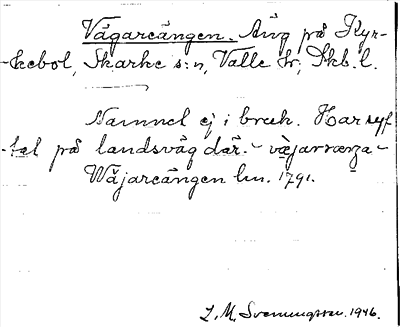 Vägareängen. Äng på Kyr-
kebol, Skarke s:n, Valle hr, Skb. l.
Namnet ej i bruk. Har syf-
tat på landsväg där. - 
Wäjareängen lm. 1791.
L. M. Svenungsson. 1946.